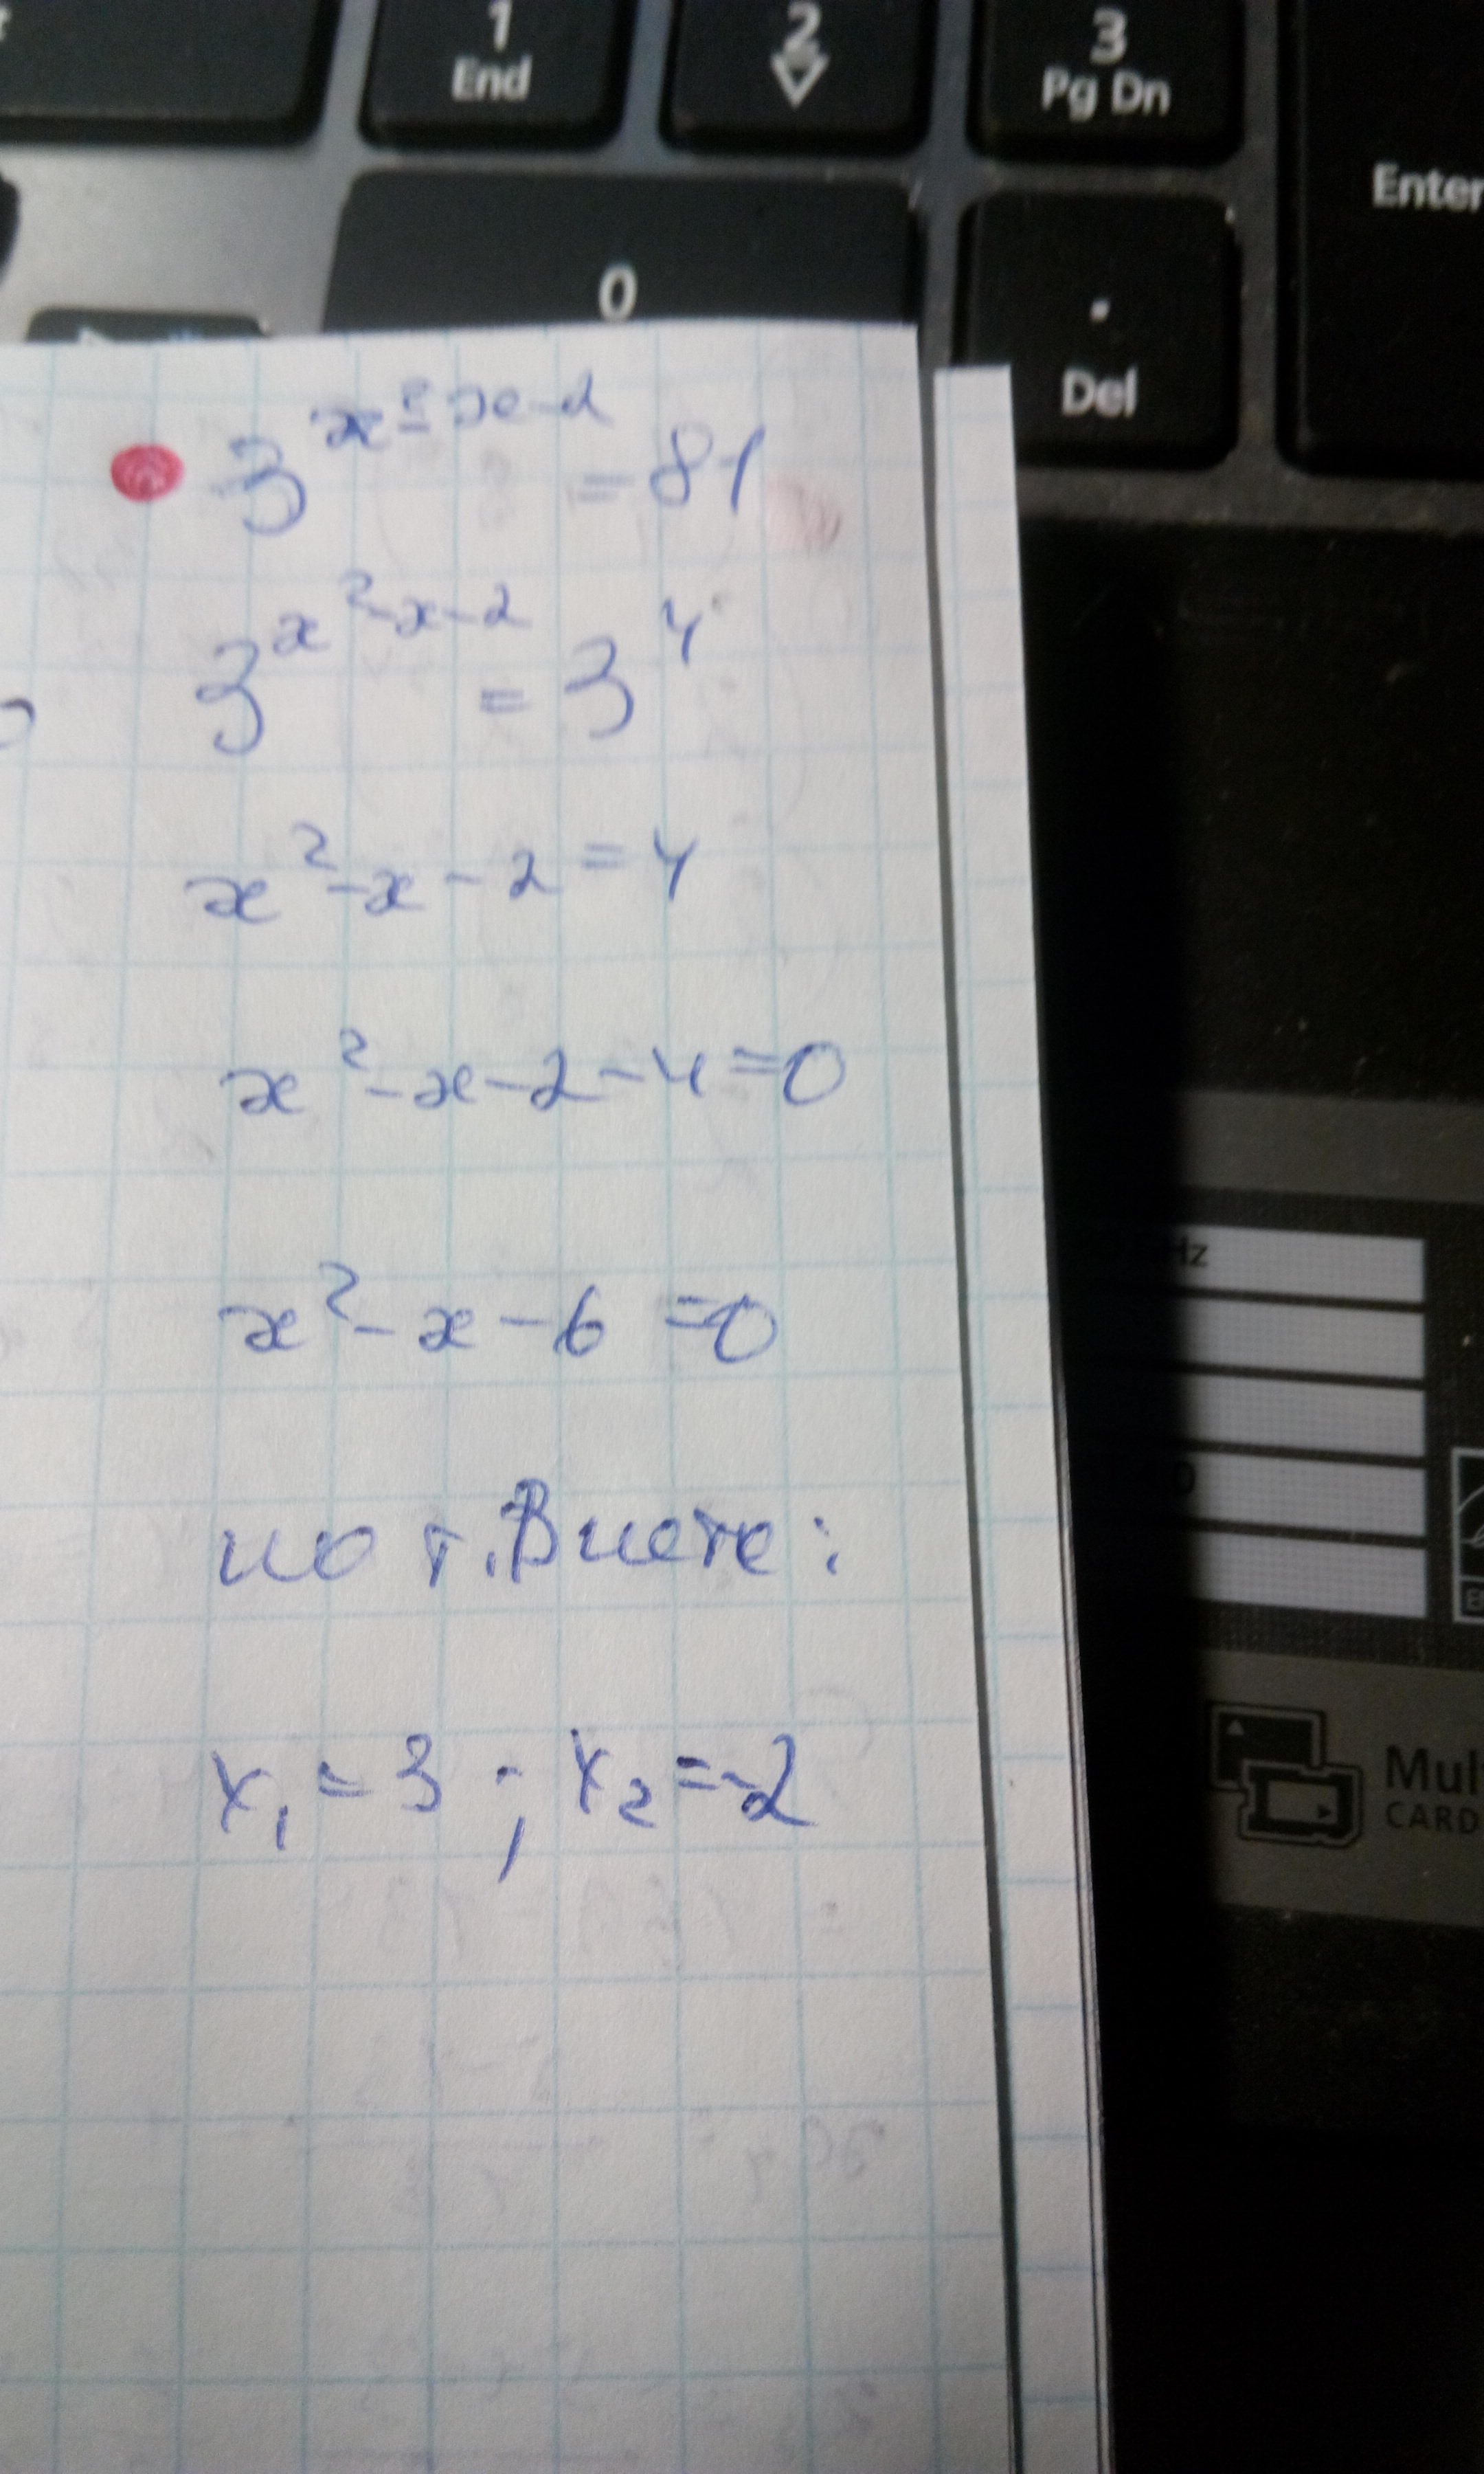 1
End
2
3
Pg Dn
Enter
0
.
Del
3^{x²-x-2} = 81
3^{x²-x-2} = 3⁴
x²-x-2=4
x²-x-2-4=0
x²-x-6=0
по т. Виете:
x₁=3; x₂=-2
Hz
Mul
CARD